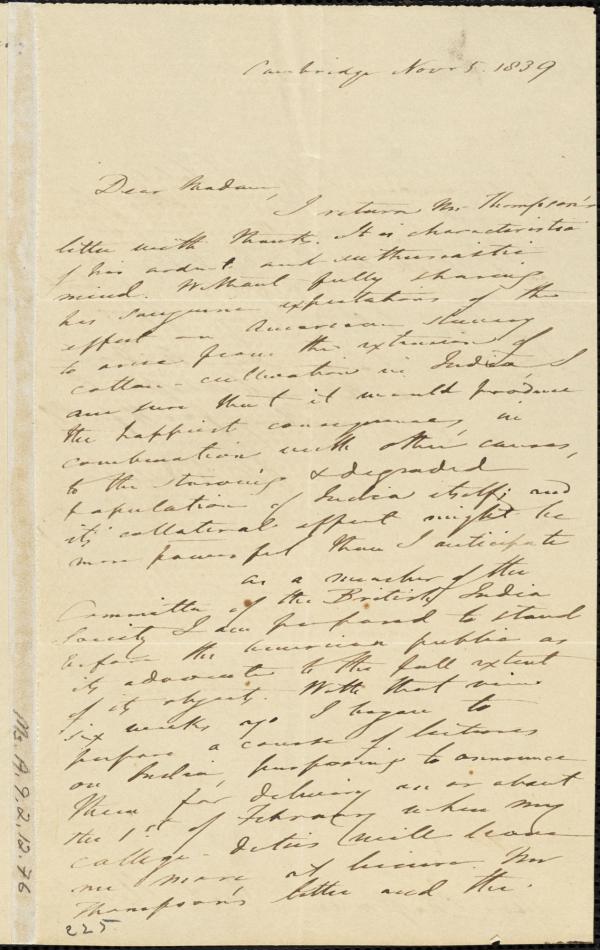 Cambridge Novr 5. 1839
Dear Madam,
I return Mr Thompson's
letter with thanks. It is characteristic
of his ardent and enthusiastic
mind. Without fully sharing
his sanguine expectations of the
effect on American slavery
to arise from the extension of
cotton-cultivation in India, I
am sure that it would produce
the happiest consequences, in
combination with other causes,
to the starving & degraded
population of India itself; and
its collateral effect might be
more powerful than I anticipate
As a member of the
Committee of the British India
Society I am prepared to stand
before the American public as
its advocate to the full extent
of its objects. With that view
six weeks ago I began to
prepare a course of lectures
on India, purposing to announce
them for delivery on or about
the 1st of February when my
college-duties will leave
me more at leisure. Mr
Thompson's letter and the
225
Ms. A.9.2.12.76